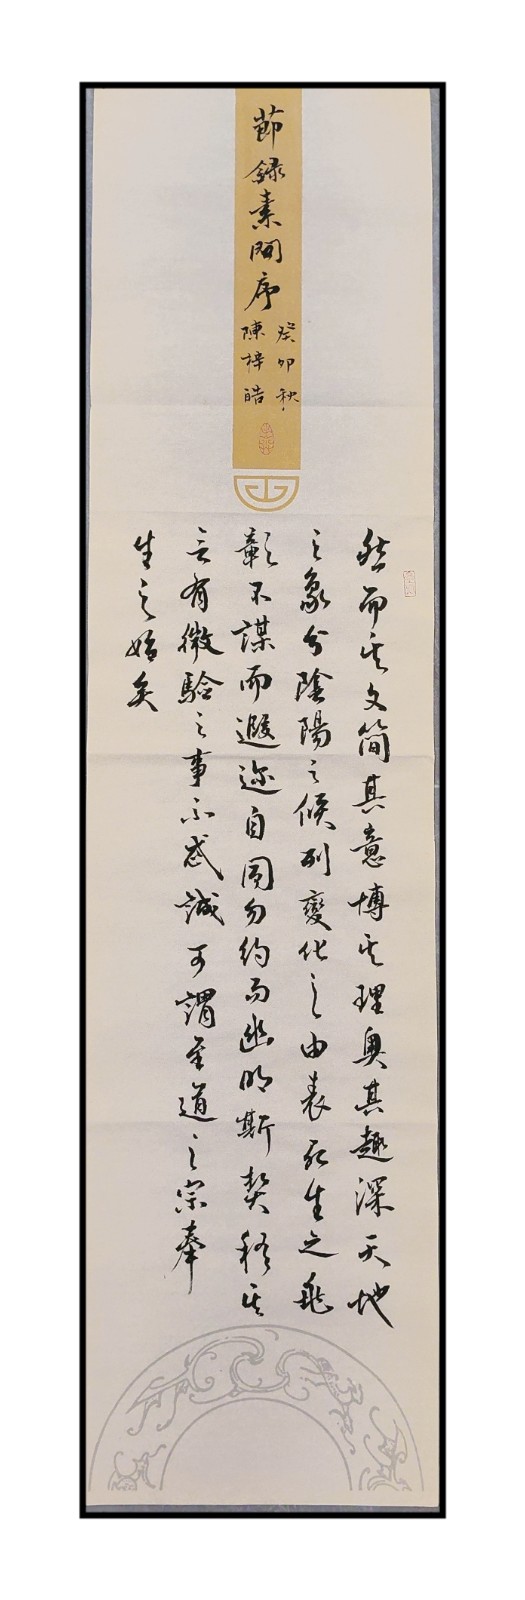 節錄素問序
癸卯秋
陳梓皓
然而其文簡其意博其理奧其趣深天地
之象分陰陽之候列變化之由表死生之兆
彰不謀而遐迩自同勿約而幽明斯契稽其
言有徵驗之事不忒誠可謂至道之宗奉
生之始矣